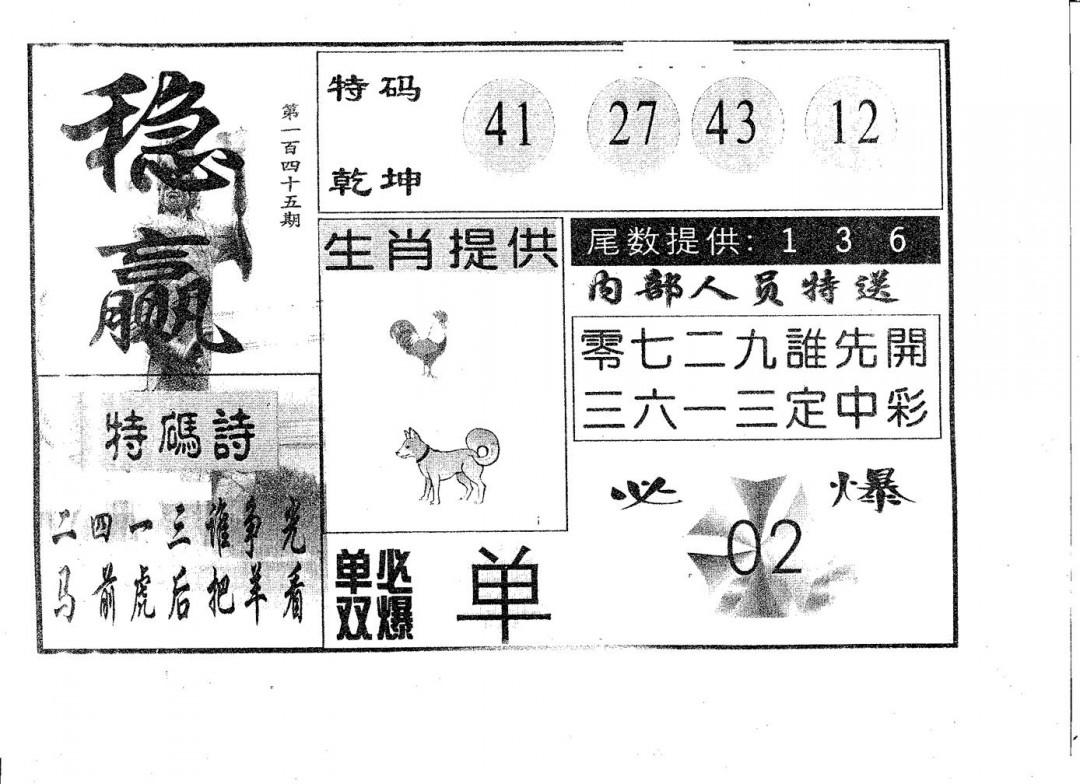 稳赢
第一百四十五期
特码
乾坤
41 27 43 12
生肖提供
尾数提供: 1 3 6
内部人员特送
零七二九誰先開
三六一三定中彩
特碼詩
二四一三谁争光
马前虎后把羊看
必爆
02
单双必爆
单